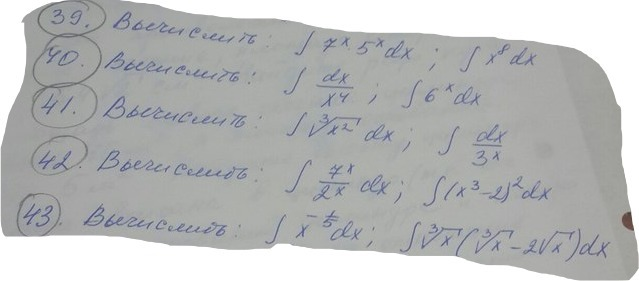 39. Вычислить: ∫ 7ˣ 5ˣ dx ; ∫ x⁸ dx
40. Вычислить: ∫ dx/x⁴ ; ∫ 6ˣ dx
41. Вычислить: ∫ ∛x² dx ; ∫ dx/3ˣ
42. Вычислить: ∫ 7ˣ/2ˣ dx ; ∫ (x³ - 2)² dx
43. Вычислить: ∫ x dx ; ∫ ∛x (∛x - 2√x) dx